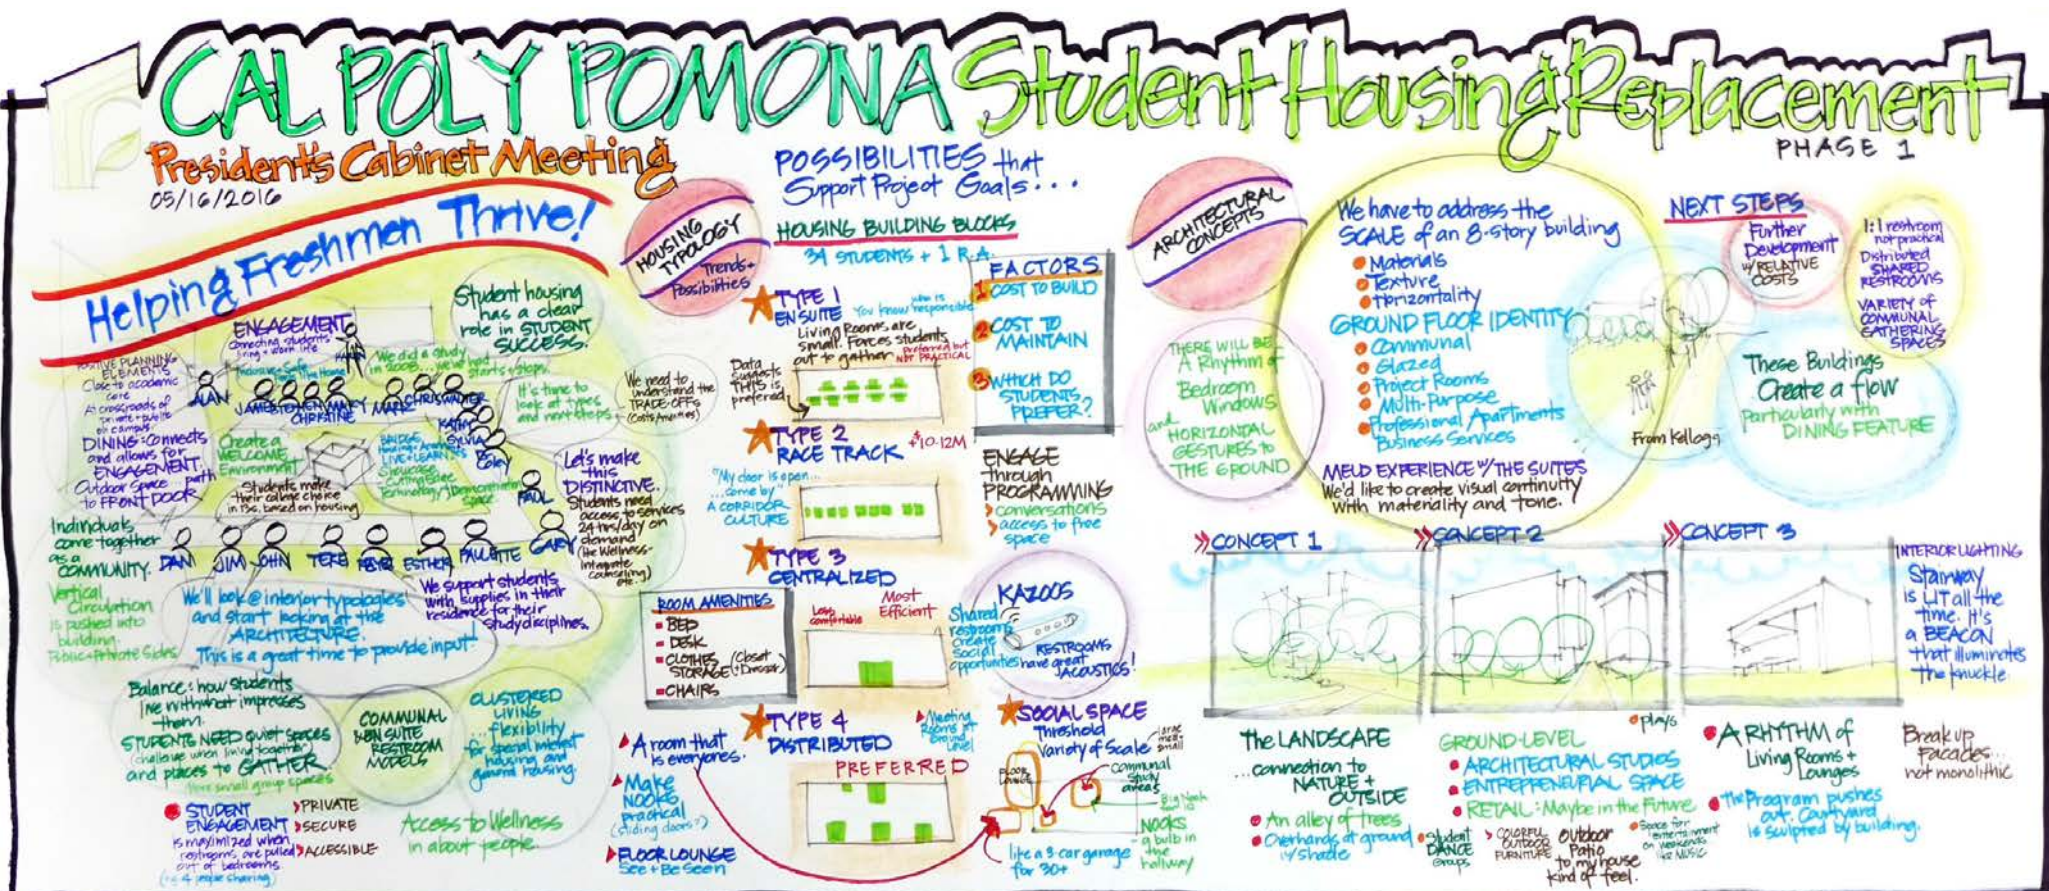 CAL POLY POMONA Student Housing Replacement
PHASE 1
President's Cabinet Meeting
05/16/2016
Helping Freshmen Thrive!
ENGAGEMENT
connecting students'
living + work life
Student housing
has a clear
role in STUDENT
SUCCESS.
POSITIVE PLANNING
ELEMENTS
Close to academic
core
At crossroads of
private + public
on campus
DINING: Connects
and allows for
ENGAGEMENT.
Outdoor Space... path
to FRONT DOOR
We did a study
in 2008... we've had
starts + stops.
It's time to
look at types
and next steps.
ALAN
JAMES
STEPHEN
MARY
CHRISTINE
MARK
CHRIS
WALTER
KATHY
SYLVIA
Coley
PAUL
Create a
WELCOME
Environment
Students make
their college choice
in 13s. based on housing
BRIDGE
LIVE+LEARN
Showcase
Cutting Edge
Technology/Demonstration
Space
Let's make
this
DISTINCTIVE.
Students need
access to services
24 hrs/day on
demand
(like Wellness-
Integrate
Counseling)
etc.
We need to
understand the
TRADE-OFFS
(Costs Amenities)
Individuals
come together
as a
COMMUNITY.
DAN
JIM
JOHN
TERE
ESTHER
PAULETTE
GARY
Vertical
Circulation
is pushed into
building.
Public + Private Sides
We'll look @ interior typologies
and start looking at the
ARCHITECTURE.
This is a great time to provide input.
We support students
with supplies in their
residence for their
study disciplines.
Balance: how students
live without impresses
them.
STUDENTS NEED quiet spaces
(challenge when living together)
and places to GATHER
More small group spaces
COMMUNAL
& EN SUITE
RESTROOM
MODELS
CLUSTERED
LIVING
... flexibility
for special interest
housing and
general housing.
STUDENT
ENGAGEMENT
is maximized when
restrooms are pulled
out of bedrooms.
(vs 4 people sharing)
PRIVATE
SECURE
ACCESSIBLE
Access to Wellness
in about people.
HOUSING
TYPOLOGY
Trends +
Possibilities
POSSIBILITIES that
Support Project Goals...
HOUSING BUILDING BLOCKS
34 STUDENTS + 1 R.A.
TYPE 1
ENSUITE
You know who is responsible
Living Rooms are
small. Forces students
out to gather
preferred but
NOT PRACTICAL
Data
suggests
THIS is
preferred
TYPE 2
RACE TRACK
+$10-12M
"My door is open...
...come by
A CORRIDOR
CULTURE
TYPE 3
CENTRALIZED
Less
comfortable
Most
Efficient
ROOM AMENITIES
BED
DESK
CLOTHES (Closet
STORAGE + Dresser)
CHAIRS
TYPE 4
DISTRIBUTED
PREFERRED
Meeting
Rooms at
Ground
Level
A room that
is everyones.
Make
NOOKS
practical
(sliding doors?)
FLOOR LOUNGE
See + Be Seen
FACTORS
1 COST TO BUILD
2 COST TO
MAINTAIN
3 WHICH DO
STUDENTS
PREFER?
ENGAGE
through
PROGRAMMING
conversations
access to free
space
KAZOOS
Shared
restrooms
create
social
opportunities
RESTROOMS
have great
ACOUSTICS!
SOCIAL SPACE
Threshold
Variety of Scale
large
med +
small
FLOOR
LOUNGE
Communal
study
areas
Big Nook
NOOKS
a bulb in
the
hallway
like a 3-car garage
for 30+
ARCHITECTURAL
CONCEPTS
THERE WILL BE
A Rhythm of
Bedroom
Windows
and
HORIZONTAL
GESTURES to
THE GROUND
We have to address the
SCALE of an 8-story building
Materials
Texture
Horizontality
GROUND FLOOR IDENTITY
Communal
Glazed
Project Rooms
Multi-Purpose
Professional Apartments
Business Services
MELD EXPERIENCE w/ THE SUITES
We'd like to create visual continuity
with materiality and tone.
From Kellogg
NEXT STEPS
Further
Development
w/ RELATIVE
COSTS
1:1 restroom
not practical
Distributed
SHARED
RESTROOMS
VARIETY of
COMMUNAL
GATHERING
SPACES
These Buildings
Create a flow
Particularly with
DINING FEATURE
CONCEPT 1
CONCEPT 2
CONCEPT 3
INTERIOR LIGHTING
Stairway
is LIT all the
time. It's
a BEACON
that illuminates
the knuckle
The LANDSCAPE
...connection to
NATURE +
OUTSIDE
An alley of trees
Overhangs at ground
w/ shade
GROUND-LEVEL
ARCHITECTURAL STUDIOS
ENTREPRENEURIAL SPACE
RETAIL: Maybe in the Future
plays
Student
DANCE
Groups
COLORFUL
OUTDOOR
FURNITURE
Outdoor
Patio
to my house
kind of feel.
Space for
entertainment
on weekends
like MUSIC
A RHYTHM of
Living Rooms +
Lounges
The Program pushes
out. Courtyard
is sculpted by building.
Break up
Facades...
not monolithic